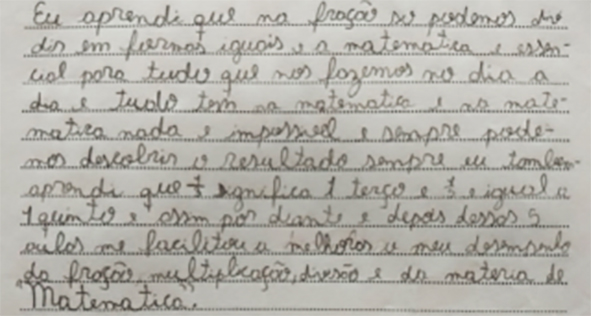 Eu aprendi que na fração so podemos divi
dir em formas iguais e a matematica e essen-
cial para tudo que nos fazemos no dia a
dia e tudo tem na matematica e na mate-
matica nada e impossivel e sempre pode-
mos descobrir o resultado sempre eu tambem
aprendi que significa 1 terço e e igual a
1 quinto e assim por diante e depois dessas 5
aulas me facilitou a melhorar o meu desempenho
da fração, multiplicação, divisão e da materia de
"Matematica".